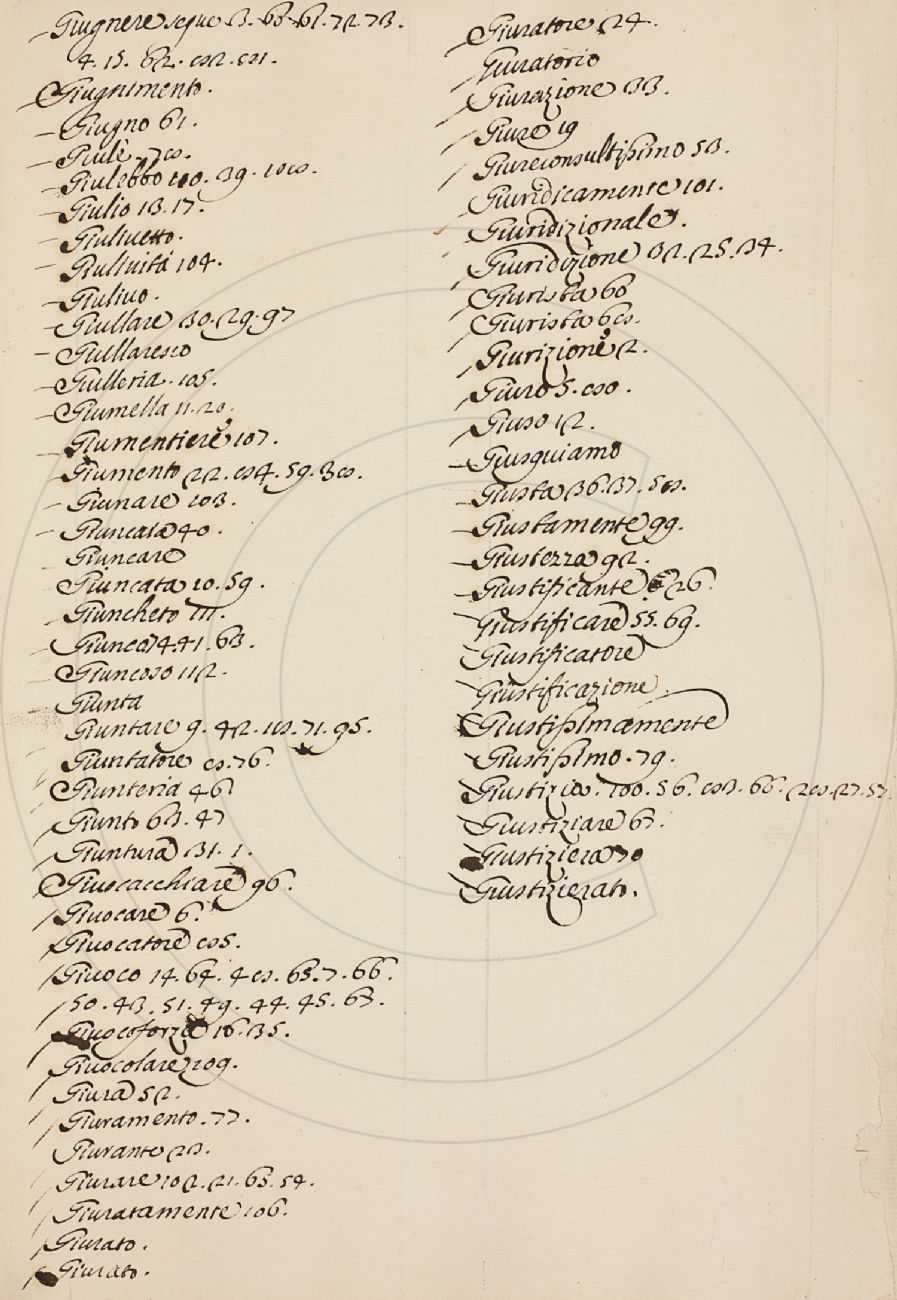 Giugnere segue 3. 68. 61. 72. 73.
4. 15. 62.
Giugnimento.
Giugno 61.
Giulebbo 39.
Giulio 13. 17.
Giuliuetto.
Giuliuità 104.
Giuliuo.
Giullare 30. 29. 97
Giullaresco
Giulleria. 105.
Giumella 11. 20.
Giumentiere 107.
Giumento 22. 59.
Giunare 103.
Giuncaia 40.
Giuncare
Giuncata 10. 59.
Giuncheto 111.
Giunco 63.
Giuncoso 112.
Giunta
Giuntare 9. 42. 71. 95.
Giuntatore 76.
Giunteria 46
Giunto 63. 47
Giuntura 31. 1.
Giuocacchiare 96.
Giuocare 6.
Giuocatore
Giuoco 14. 64. 65. 7. 66.
50. 43. 51. 49. 44. 45. 67.
Giuocoforza 16. 35.
Giuocolare 109.
Giura 52.
Giuramento. 77.
Giurante
Giurare 102. 21. 65. 54.
Giuratamente 106.
Giurato.
Giurato.
Giuratore 24.
Giuratorio
Giurazione 33.
Giure 19
Giureconsultissimo 53.
Giuridicamente 101.
Giuridizionale.
Giuridizione 32. 25. 34.
Giurista 60
Giurista
Giurizione 2.
Giuro 5.
Giuso 12.
Giusquiamo
Giusta 36. 37.
Giustamente 99.
Giustezza 92.
Giustificante 26.
Giustificare 55. 69.
Giustificatore
Giustificazione
Giustissimamente
Giustissimo. 79.
100. 56. 66. 27. 57
Giustiziare 67.
Giustiziera 70
Giustizierato.